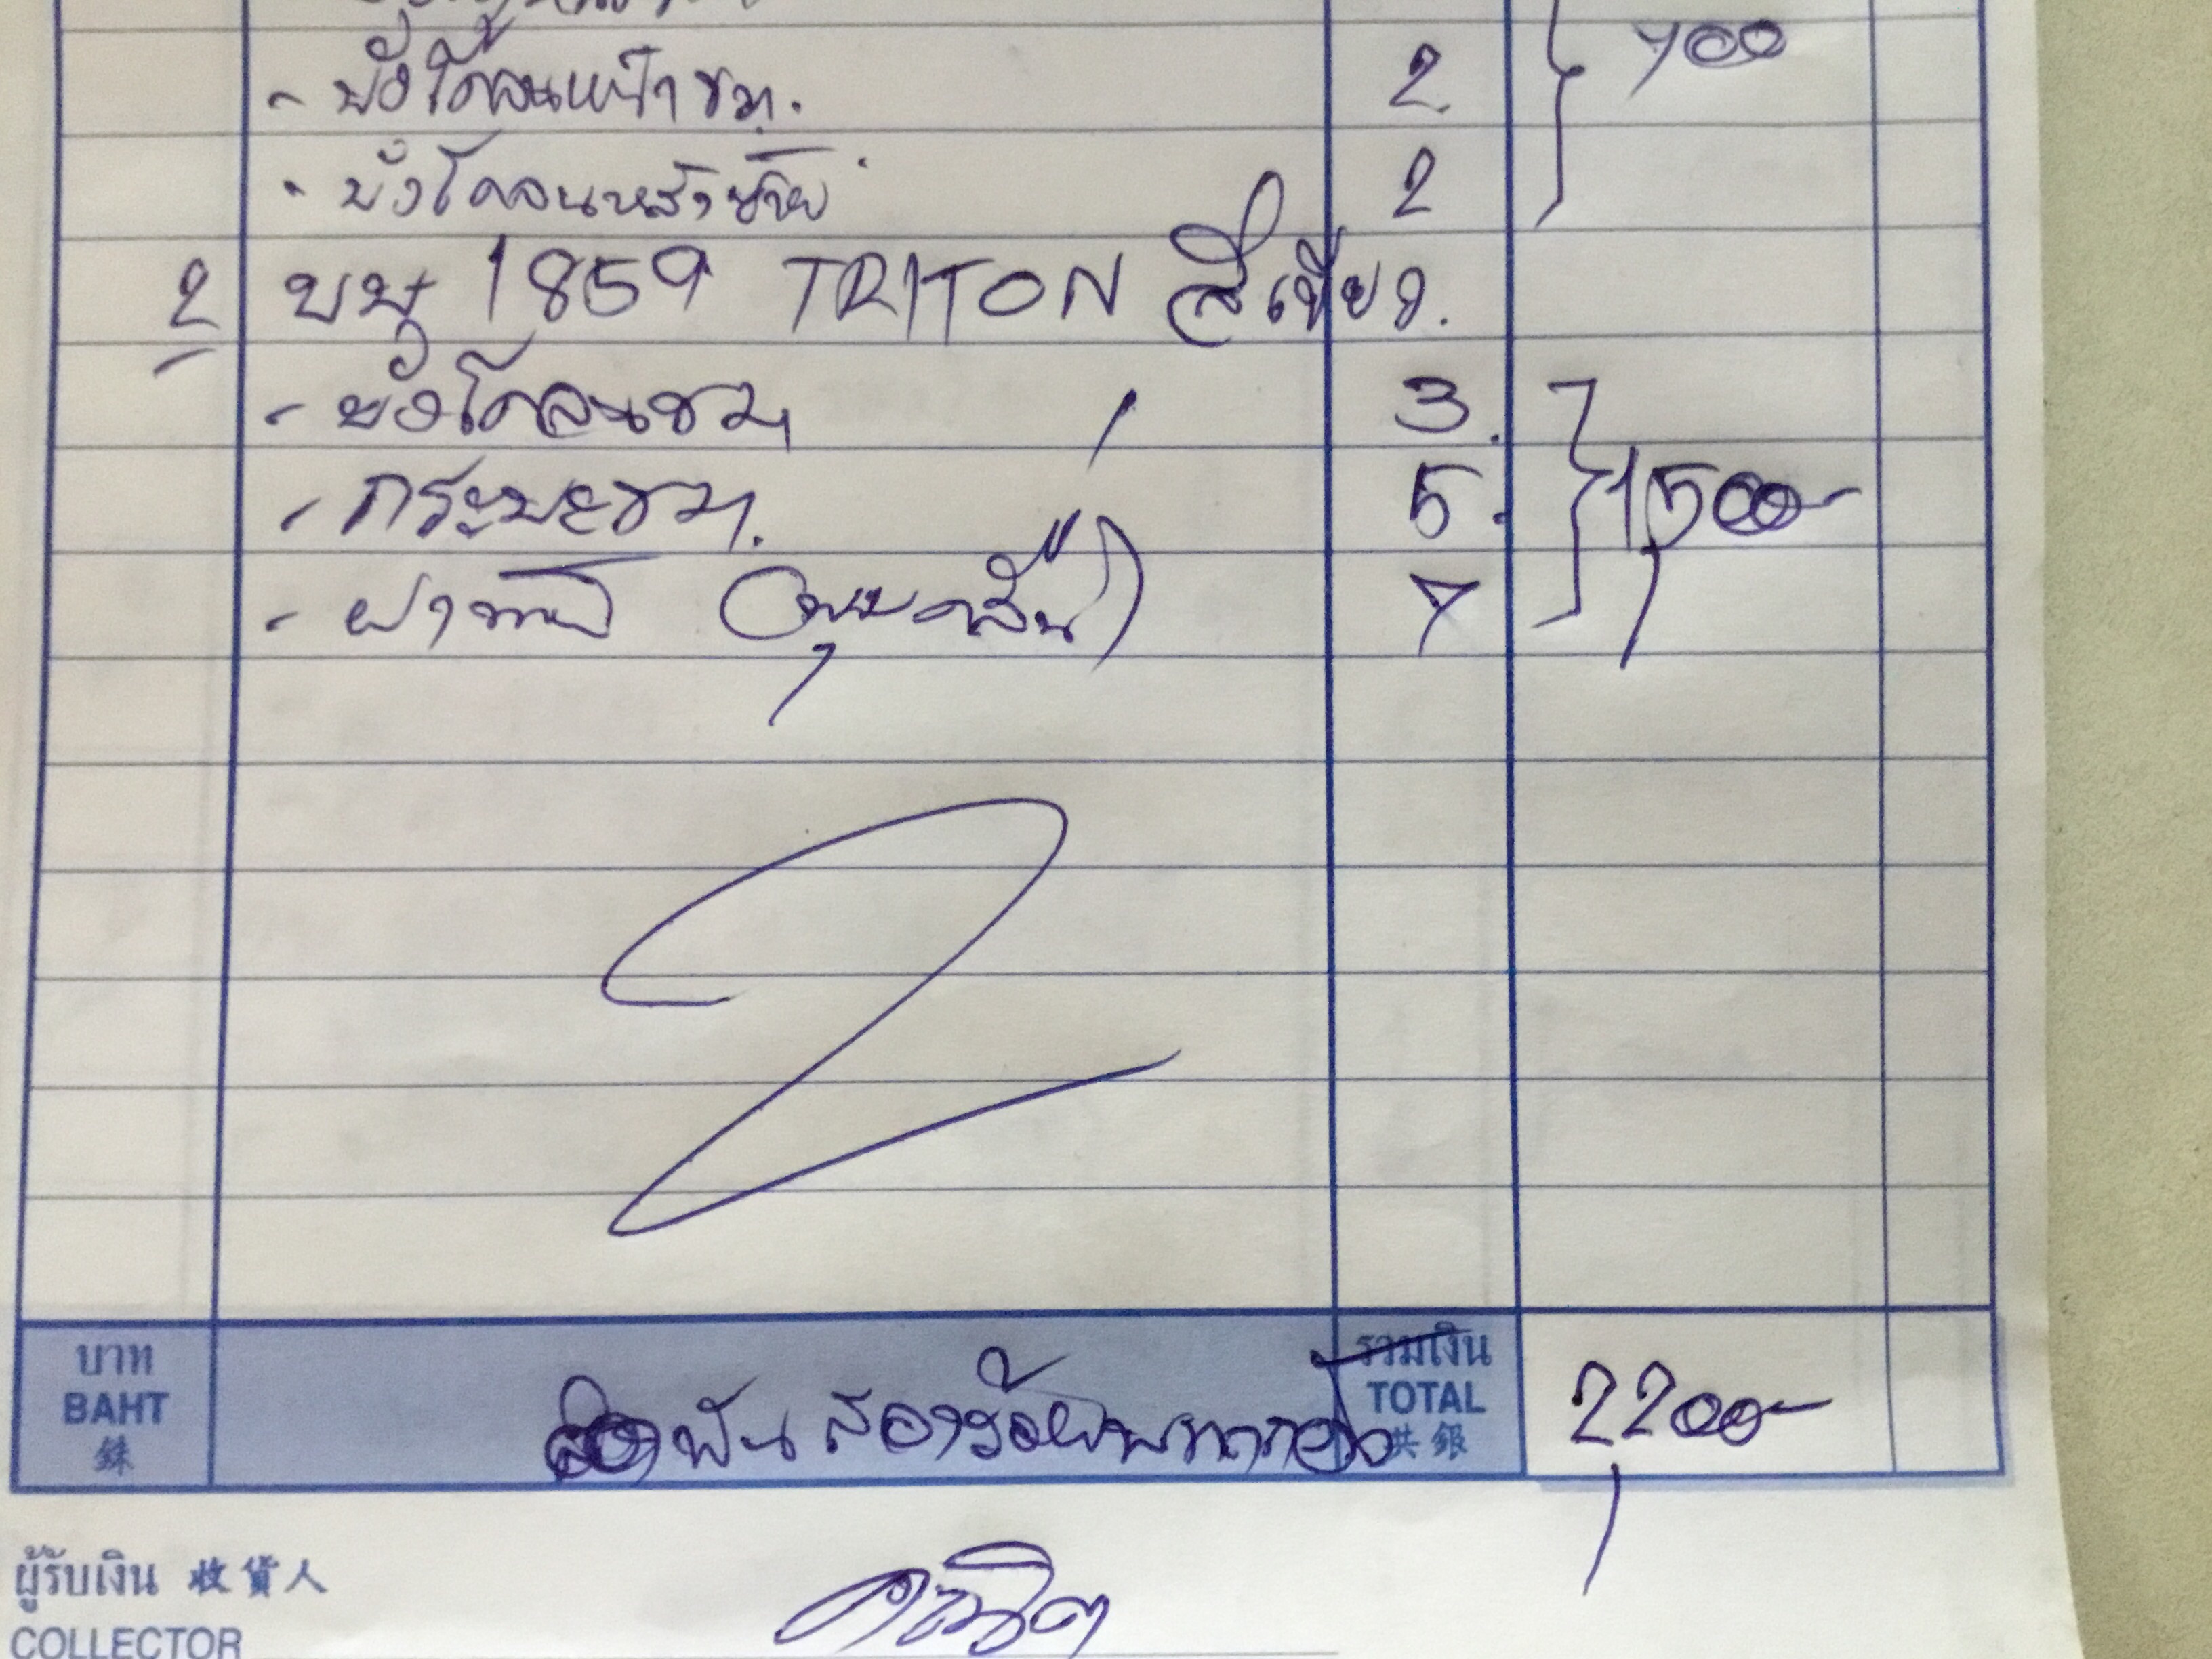 700
- บังโคลนหน้า ขวา. 2
- บังโคลนหลังซ้าย 2
2 บษ 1859 TRITON สีเขียว.
- บังโคลนขวา 3.
- กระบะขวา. 5. 1500-
- ฝาท้าย 7
บาท
BAHT
銖
พันสองร้อยบาทถ้วน
รวมเงิน
TOTAL
共銀
2200-
ผู้รับเงิน 收貨人
COLLECTOR